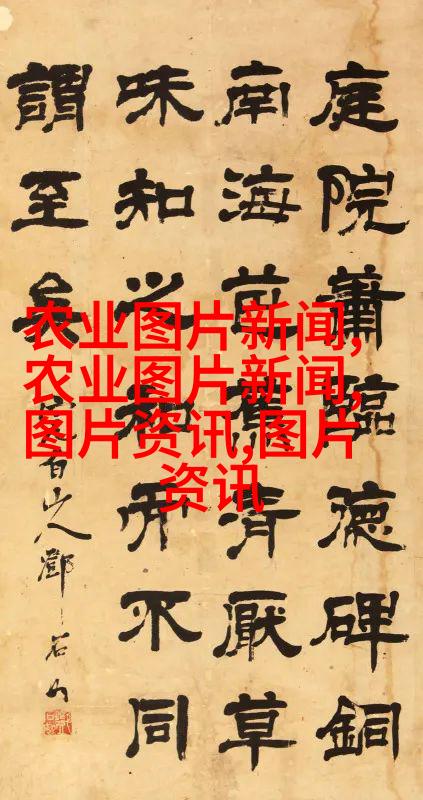 庭院蕭臨德碑銅
南海青厭草
味知不同
謂至矣
白山人鄧石如
农业图片新闻,
农业图片新闻,
图片资讯,图片
资讯